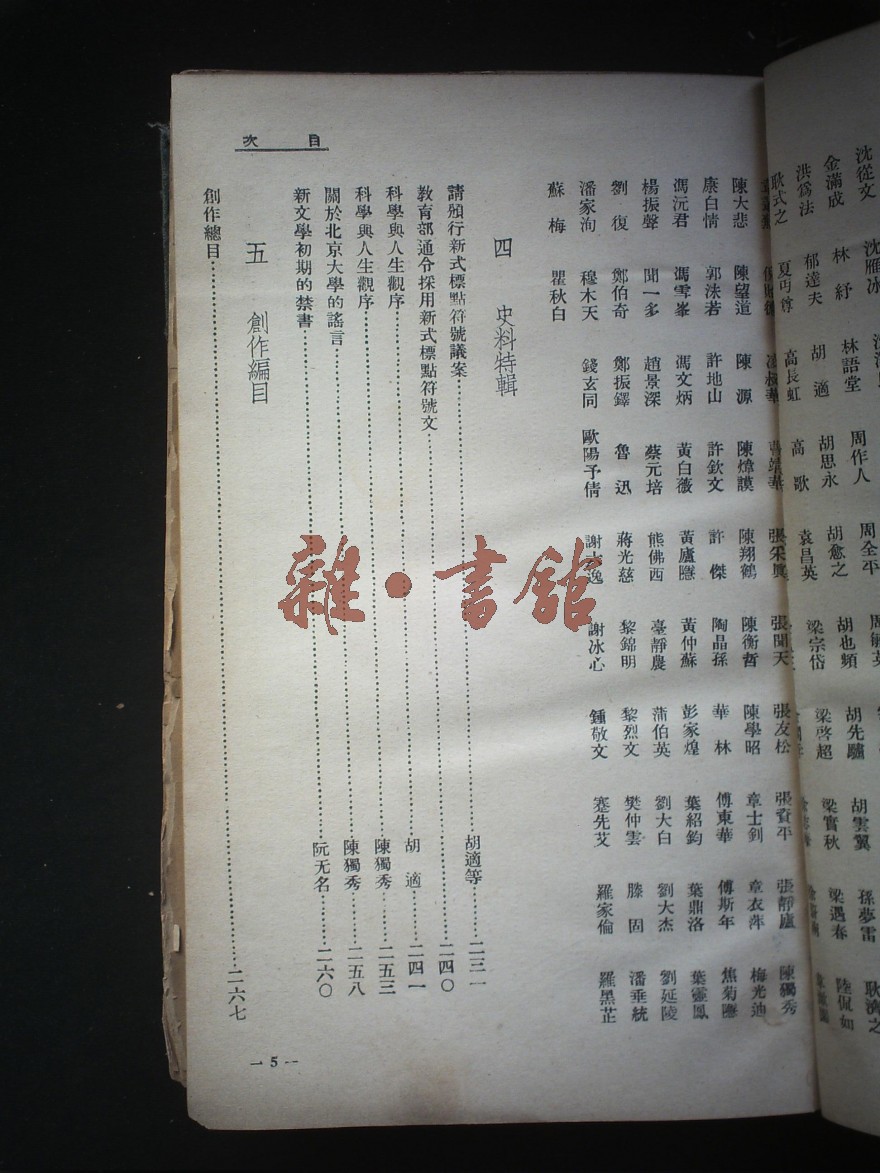 沈從文 沈雁冰
金滿成 林紓 林語堂 周作人 周全平
洪爲法 郁達夫 胡適 胡思永 胡愈之 胡也頻 胡先驌 胡雲翼 孫夢雷 耿濟之
耿式之 夏丏尊 高長虹 高歌 袁昌英 梁宗岱 梁啓超 梁實秋 梁遇春 陸侃如
張聞天 張友松 張資平 張靜廬 陳獨秀
陳大悲 陳望道 陳源 陳煒謨 陳翔鶴 陳衡哲 陳學昭 章士釗 章衣萍 梅光迪
康白情 郭沫若 許地山 許欽文 許傑 陶晶孫 華林 傅東華 傅斯年 焦菊隱
馮沅君 馮雪峯 馮文炳 黃白薇 黃廬隱 黃仲蘇 彭家煌 葉紹鈞 葉鼎洛 葉靈鳳
楊振聲 聞一多 趙景深 蔡元培 熊佛西 臺靜農 蒲伯英 劉大白 劉大杰 劉延陵
劉復 鄭伯奇 鄭振鐸 魯迅 蔣光慈 黎錦明 黎烈文 樊仲雲 滕固 潘垂統
潘家洵 穆木天 錢玄同 歐陽予倩 謝六逸 謝冰心 鍾敬文 蹇先艾 羅家倫 羅黑芷
蘇梅 瞿秋白
四 史料特輯
請頒行新式標點符號議案……胡適等……二三一
教育部通令採用新式標點符號文……二四〇
科學與人生觀序……胡適……二四一
科學與人生觀序……陳獨秀……二五三
關於北京大學的謠言……陳獨秀……二五八
新文學初期的禁書……阮无名……二六〇
五 創作編目
創作總目……二六七
目次
— 5 —
雜·書館